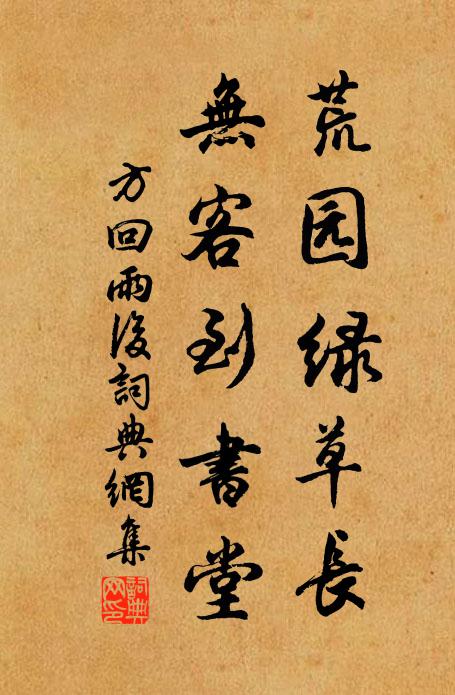 荒园绿草長
無客到書堂
方回雨後詞典網集
詞典网印